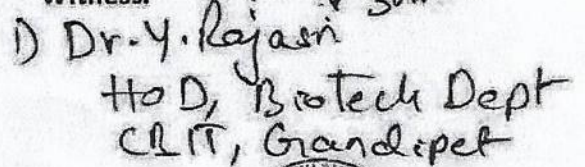 1) Dr. Y. Rajasri
HoD, Biotech Dept
CBIT, Gandipet